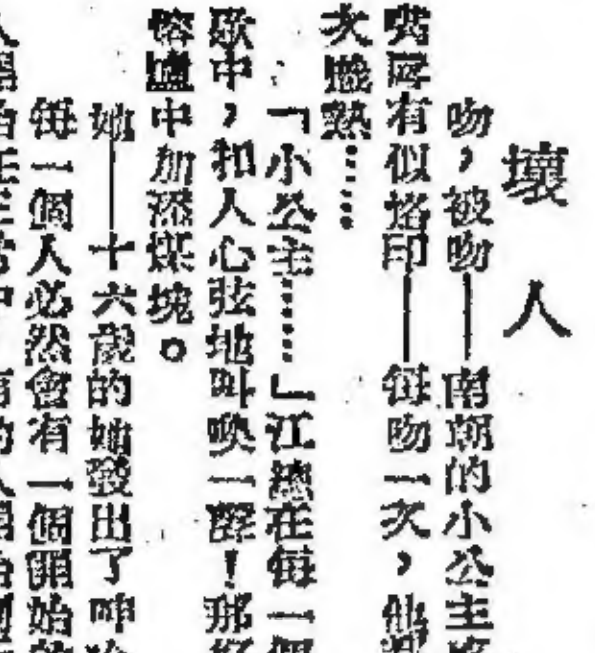 壞人
吻，被吻——南朝的小公主
嘴唇有似烙印——每吻一次，他
次熾熱……
「小公主……」江總在每一個
歌中，扣人心弦地叫喚一聲！那
熔爐中加添煤塊。
她——十六歲的她發出了呻吟
每一個人必然會有一個開始的